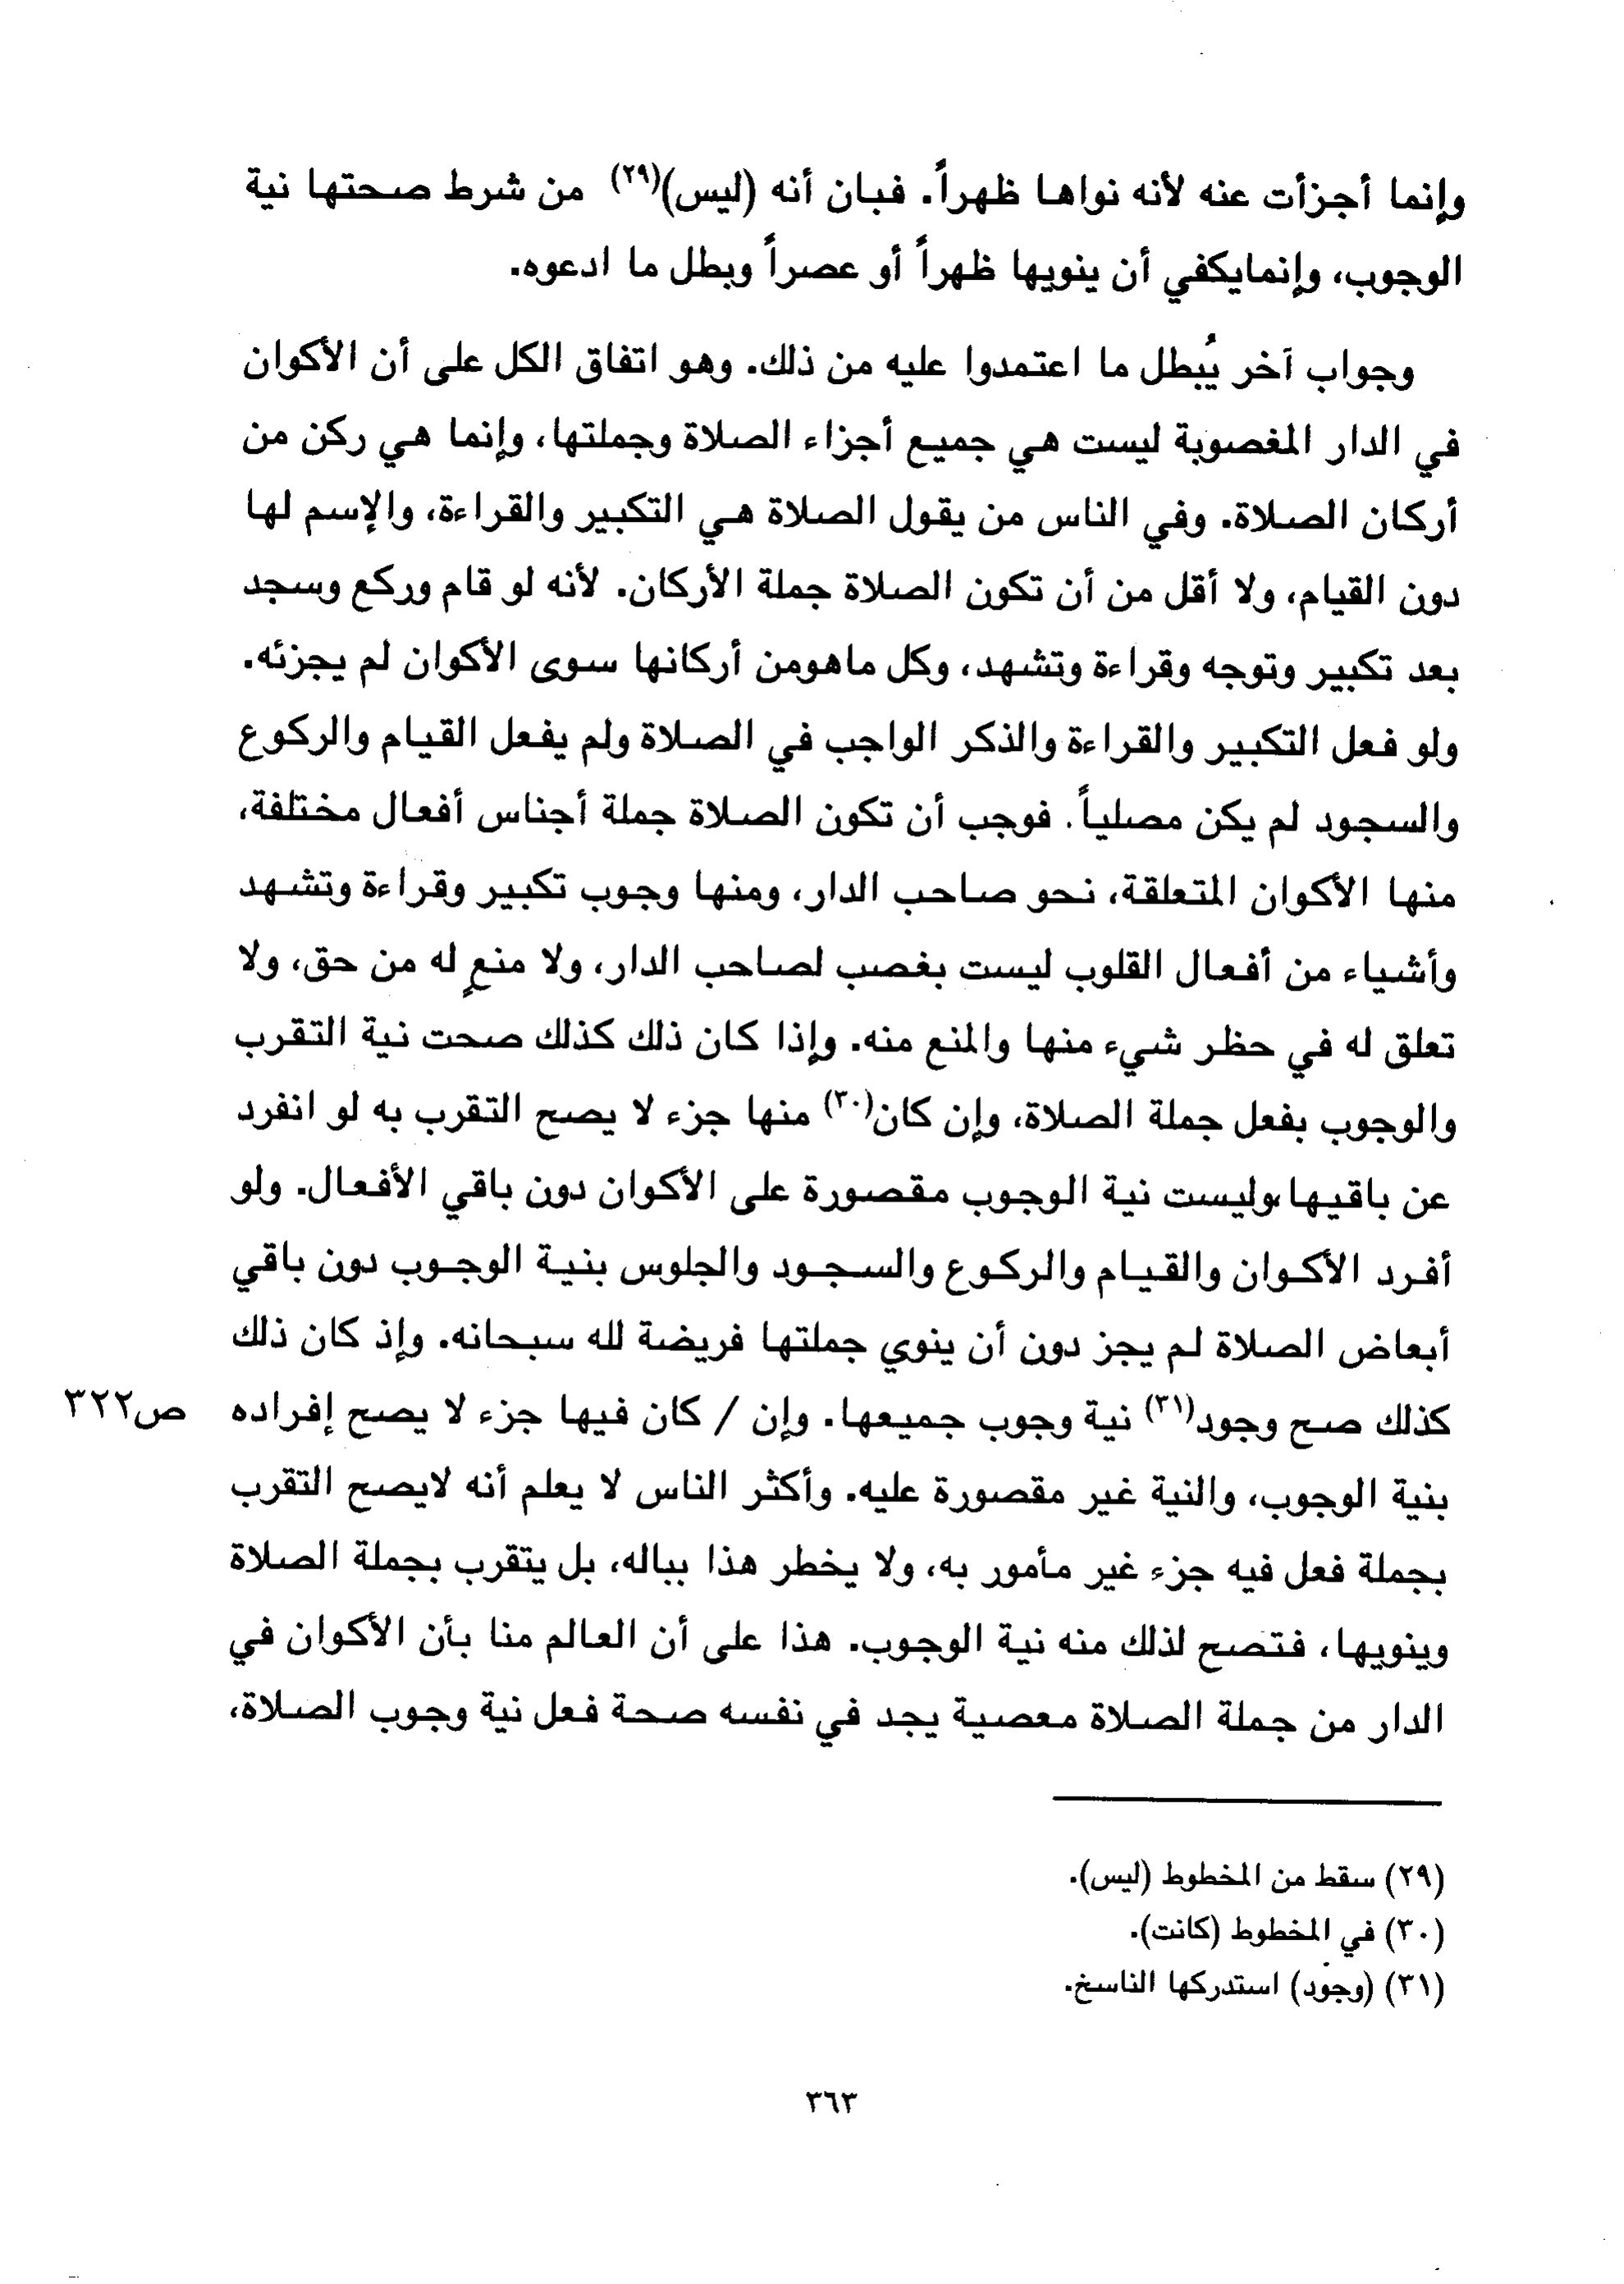 وإنما أجزأت عنه لأنه نواها ظهراً. فبان أنه (ليس)(٢٩) من شرط صحتها نية
الوجوب، وإنمايكفي أن ينويها ظهراً أو عصراً وبطل ما ادعوه.
وجواب آخر يُبطل ما اعتمدوا عليه من ذلك. وهو اتفاق الكل على أن الأكوان
في الدار المغصوبة ليست هي جميع أجزاء الصلاة وجملتها، وإنما هي ركن من
أركان الصلاة. وفي الناس من يقول الصلاة هي التكبير والقراءة، والإسم لها
دون القيام، ولا أقل من أن تكون الصلاة جملة الأركان. لأنه لو قام وركع وسجد
بعد تكبير وتوجه وقراءة وتشهد، وكل ماهومن أركانها سوى الأكوان لم يجزئه.
ولو فعل التكبير والقراءة والذكر الواجب في الصلاة ولم يفعل القيام والركوع
والسجود لم يكن مصلياً. فوجب أن تكون الصلاة جملة أجناس أفعال مختلفة،
منها الأكوان المتعلقة، نحو صاحب الدار، ومنها وجوب تكبير وقراءة وتشهد
وأشياء من أفعال القلوب ليست بغصب لصاحب الدار، ولا منعٍ له من حق، ولا
تعلق له في حظر شيء منها والمنع منه. وإذا كان ذلك كذلك صحت نية التقرب
والوجوب بفعل جملة الصلاة، وإن كان(٣٠) منها جزء لا يصح التقرب به لو انفرد
عن باقيها،وليست نية الوجوب مقصورة على الأكوان دون باقي الأفعال. ولو
أفرد الأكوان والقيام والركوع والسجود والجلوس بنية الوجوب دون باقي
أبعاض الصلاة لم يجز دون أن ينوي جملتها فريضة لله سبحانه. وإذ كان ذلك
كذلك صح وجود(٣١) نية وجوب جميعها. وإن / كان فيها جزء لا يصح إفراده ص٣٢٢
بنية الوجوب، والنية غير مقصورة عليه. وأكثر الناس لا يعلم أنه لايصح التقرب
بجملة فعل فيه جزء غير مأمور به، ولا يخطر هذا بباله، بل يتقرب بجملة الصلاة
وينويها، فتصح لذلك منه نية الوجوب. هذا على أن العالم منا بأن الأكوان في
الدار من جملة الصلاة معصية يجد في نفسه صحة فعل نية وجوب الصلاة،
(٢٩) سقط من المخطوط (ليس).
(٣٠) في المخطوط (كانت).
(٣١) (وجود) استدركها الناسخ.
٣٦٣